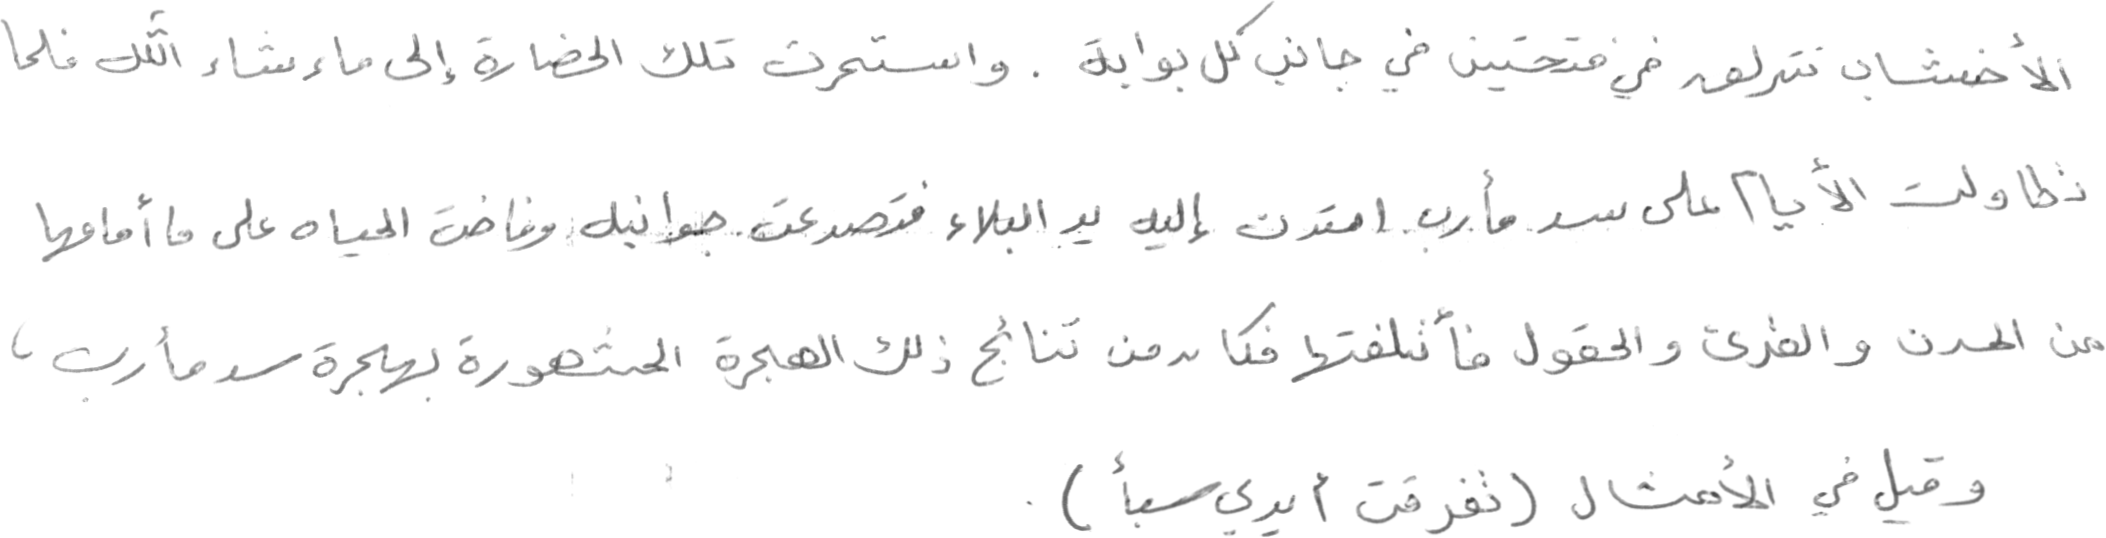 الأخشاب تنزلق في فتحتين في جانب كل بوابة . واستمرت تلك الحضارة إلى ما شاء الله فلما
تطاولت الأيام على سد مأرب امتدت إليه يد البلاء فتصدعت جوانبه وفاضت المياه على ما أمامها
من المدن والقرى والحقول فأتلفتها فكان من نتائج ذلك الهجرة المشهورة بهجرة سد مأرب ،
وقيل في الأمثال (تفرقت أيدي سبأ) .